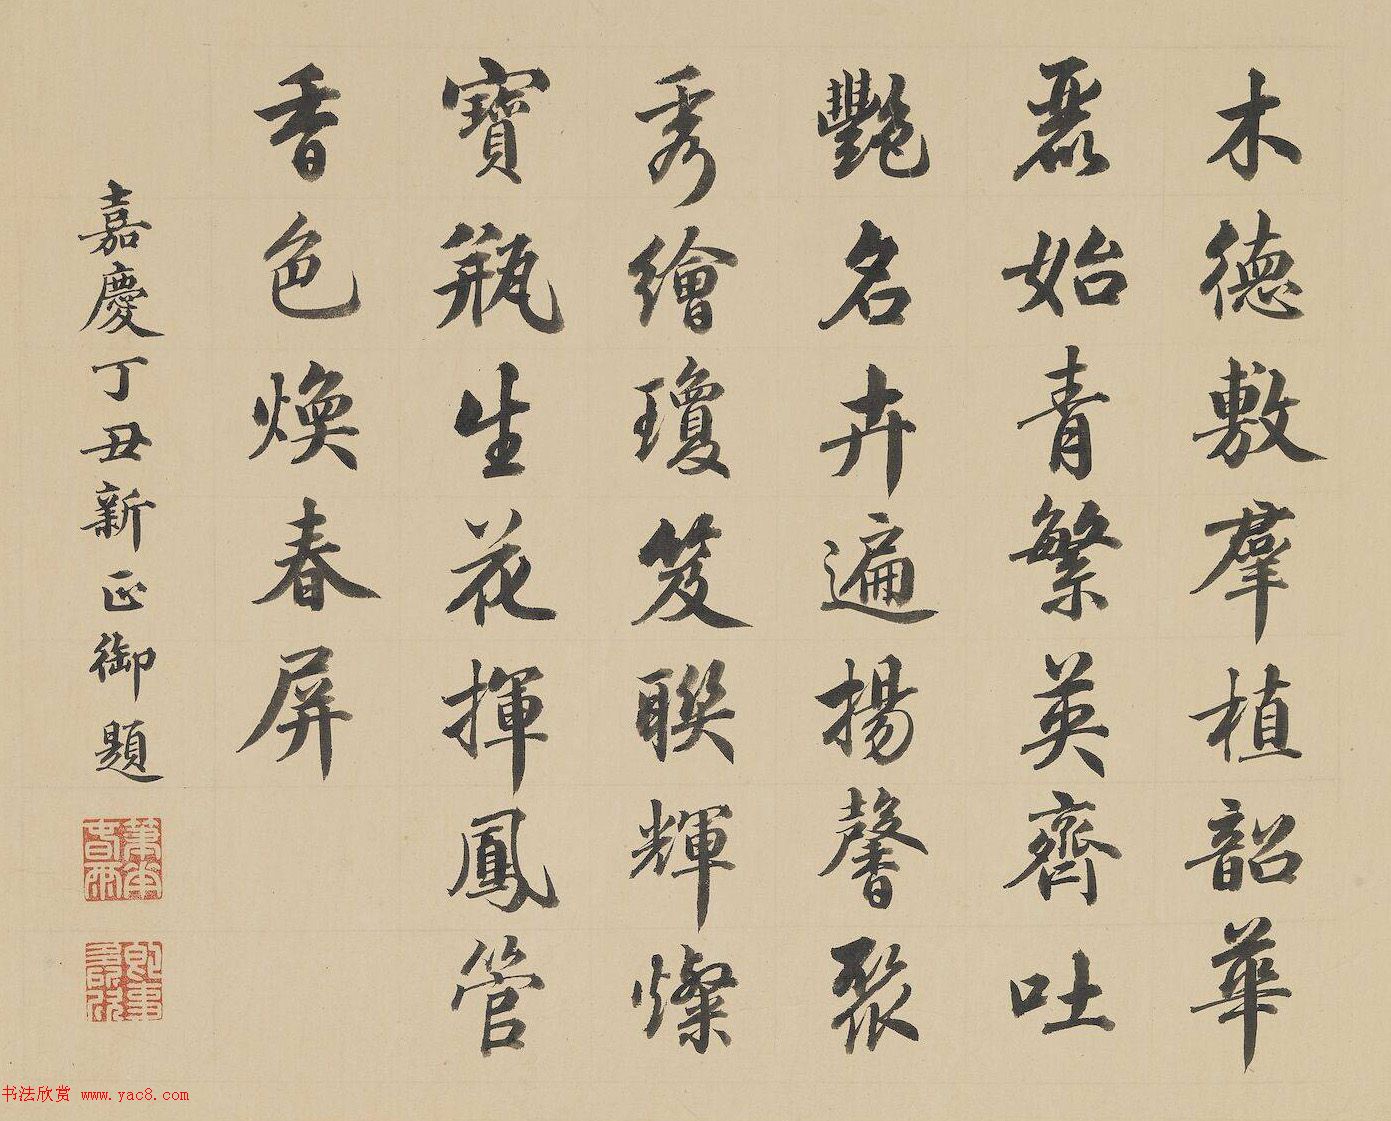 木德敷羣植韶華
麗始青繁英齊吐
艷名卉遍揚馨聚
秀繪瓊笈聯輝燦
寶瓶生花揮鳳管
香色煥春屏
嘉慶丁丑新正御題
即事多所欣
书法欣赏 www.yac8.com